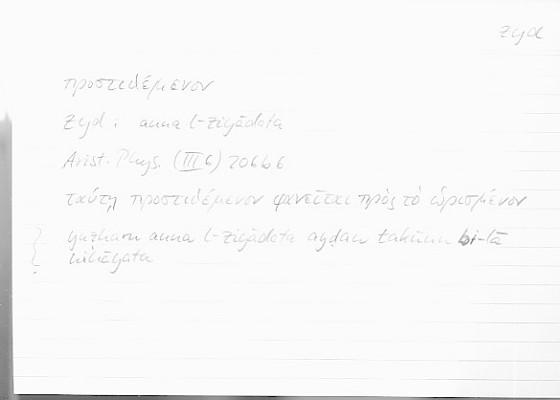 zyd
προστιθέμενον
zyd : anna l-ziyādata
Arist. Phys. (III 6) 206b6
ταύτῃ προστιθέμενον φανεῖται πρὸς τὸ ὡρισμένον
yuẓhanu anna l-ziyādata ayḍan takūnu bi-lā
nihāyata